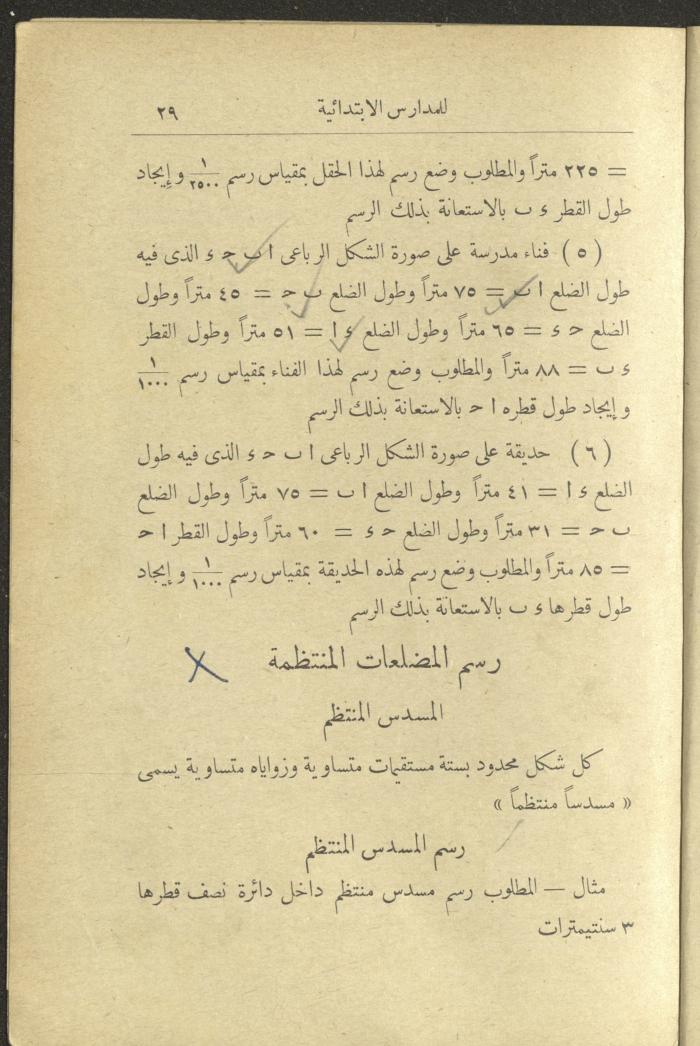 للمدارس الابتدائية ٢٩
= ٢٢٥ متراً والمطلوب وضع رسم لهذا الحقل بمقياس رسم ١/٢٥٠٠ وإيجاد
طول القطر ء ب بالاستعانة بذلك الرسم
( ٥ ) فناء مدرسة على صورة الشكل الرباعى ا ب ح ء الذى فيه
طول الضلع ا ب = ٧٥ متراً وطول الضلع ب ح = ٤٥ متراً وطول
الضلع ح ء = ٦٥ متراً وطول الضلع ء ا = ٥١ متراً وطول القطر
ء ب = ٨٨ متراً والمطلوب وضع رسم لهذا الفناء بمقياس رسم ١/١٠٠٠
وإيجاد طول قطره ا ح بالاستعانة بذلك الرسم
( ٦ ) حديقة على صورة الشكل الرباعى ا ب ح ء الذى فيه طول
الضلع ء ا = ٤١ متراً وطول الضلع ا ب = ٧٥ متراً وطول الضلع
ب ح = ٣١ متراً وطول الضلع ح ء = ٦٠ متراً وطول القطر ا ح
= ٨٥ متراً والمطلوب وضع رسم لهذه الحديقة بمقياس رسم ١/١٠٠٠ وإيجاد
طول قطرها ء ب بالاستعانة بذلك الرسم
رسم المضلعات المنتظمة
المسدس المنتظم
كل شكل محدود بستة مستقيمات متساوية وزواياه متساوية يسمى
« مسدساً منتظماً »
رسم المسدس المنتظم
مثال — المطلوب رسم مسدس منتظم داخل دائرة نصف قطرها
٣ سنتيمترات